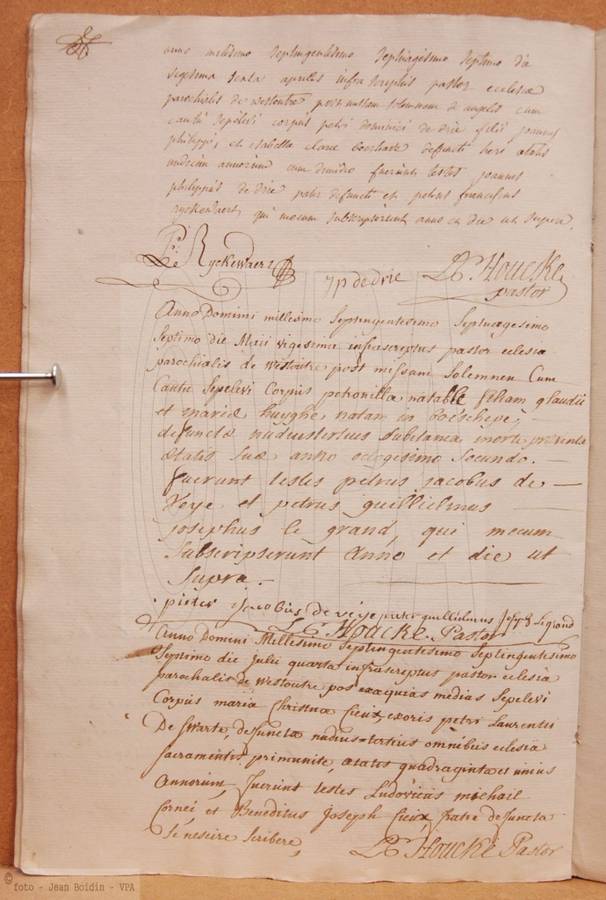 anno millesimo septingentesimo septuagesimo septimo die
vigesima sexta aprilis infrascriptus pastor ecclesiæ
parochialis de westoutre post missam solemnem de angelis cum
cantu sepelivi corpus petri dominici de drie filii joannis
philippi, et isabellæ claræ defuncti heri ætatis
undecim annorum cum dimidio fuerunt testes joannes
philippus de drie pater defuncti et petrus franciscus
ryckewaert, qui mecum subscripserunt anno et die ut supra.
P: F: Ryckewaert
jp de drie
L Houcke
pastor
Anno Domini millesimo Septingentesimo Septuagesimo
Septimo die Maii vigesima infrascriptus pastor eclesia
parochialis de westoutre post missam Solemnem Cum
Cantu Sepelevi Corpus petronilla natable filiam glaudii
et mariæ huyghe natam in boeschepe,
defunctæ nudiustertius Substanea morte preventa
ætatis suæ anno octogesimo Secundo.
fuerunt testes petrus jacobus de
Veye et petrus guillielmus
josephus le grand, qui mecum
Subscripserunt Anno et die ut
Supra.
pieter Jacobus de veye petrus guillielmus Joseph Legrand
L Houcke Pastor
Anno Domini Millesimo Septingentesimo Septingentesimo
Septimo die julii quarta infrascriptus pastor eclesia
parochalis de westoutre pos exequias medias Sepelevi
Corpus maria Christina Cieux exoris petri Laurentii
De Swarte, defunctæ nudius-tertius omnibus eclesia
Sacramentis primunitæ, ætatis quadraginta et unius
Annorum fuerunt testes Ludovicus michail
Cornei et Beneditus Joseph Cieux fratre defuncta
Se nescire Scribere,
L Houcke Pastor
© foto - Jean Boidin - VPA